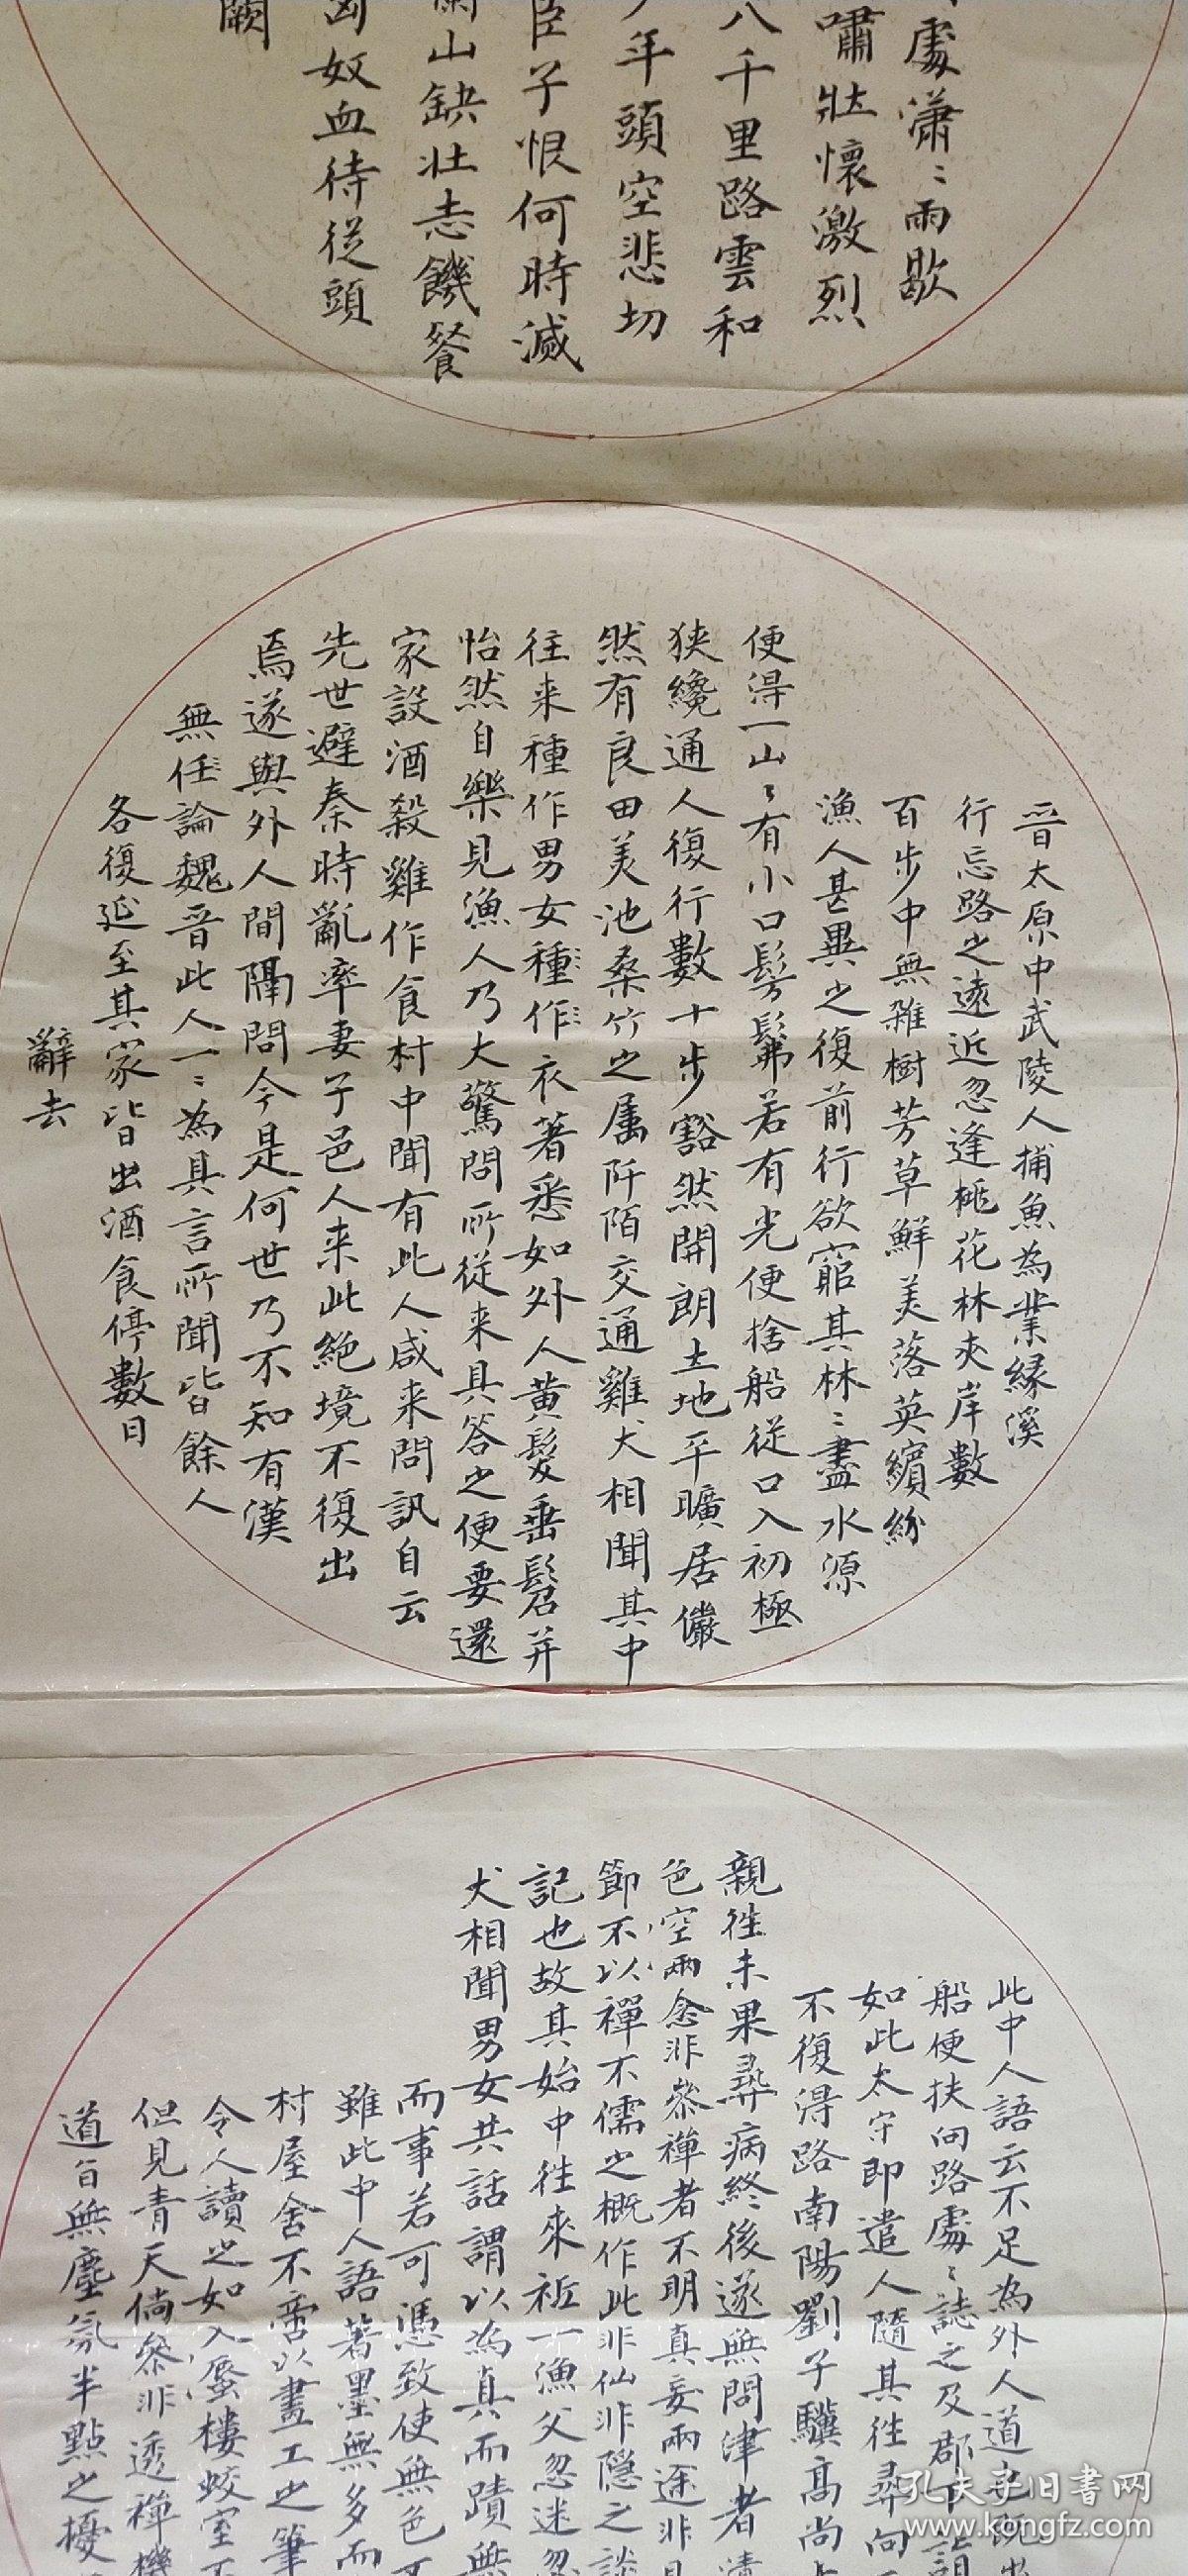 處潇〻雨歇
嘯壯懷激烈
八千里路雲和
年頭空悲切
臣子恨何時滅
蘭山缺壮志饑餐
匈奴血待從頭
闕
晋太原中武陵人捕魚為業緣溪
行忘路之遠近忽逢桃花林夾岸數
百步中無雜樹芳草鮮美落英繽紛
漁人甚異之復前行欲窮其林〻盡水源
便得一山〻有小口髣髴若有光便捨船從口入初極
狭纔通人復行數十步豁然開朗土地平曠居儼
然有良田美池桑竹之属阡陌交通雞犬相聞其中
往来種作男女種作衣著悉如外人黄髮垂髫并
怡然自樂見漁人乃大驚問所從来具答之便要還
家設酒殺雞作食村中聞有此人咸来問訊自云
先世避秦時亂率妻子邑人来此絶境不復出
焉遂與外人間隔問今是何世乃不知有漢
無任論魏晋此人一〻為具言所聞皆餘人
各復延至其家皆出酒食停數日
辭去
此中人語云不足為外人道也既出
船便扶向路處〻誌之及郡下詣
如此太守即遣人隨其往尋向
不復得路南陽劉子驥高尚
親往未果尋病終後遂無問津者
色空兩念非叅禪者不明真妄兩途非
節不以禪不儒之概作此非仙非隱之談
記也故其始中往來祇一漁父忽迷忽
犬相聞男女共話謂以為真而蹟無
而事若可憑致使無色
雖此中人語著墨無多而
村屋舍不啻以畫工之筆
令人讀之如入蜃樓蛟室
但見青天倘叅非透禅機
道旨無塵氛半點之擾
孔夫子旧書网
www.kongfz.com